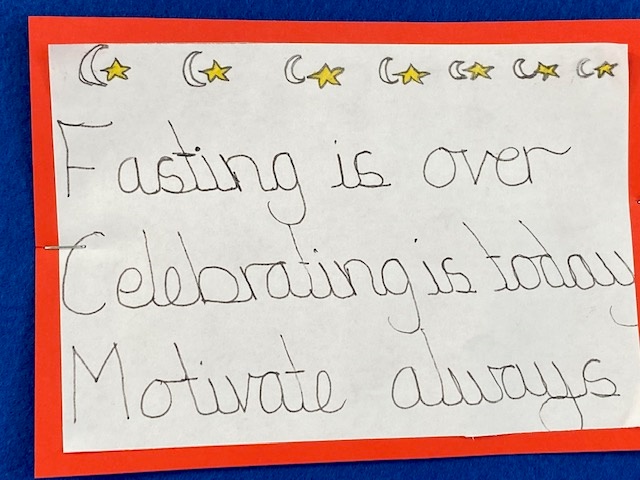 Fasting is over
Celebrating is today
Motivate always